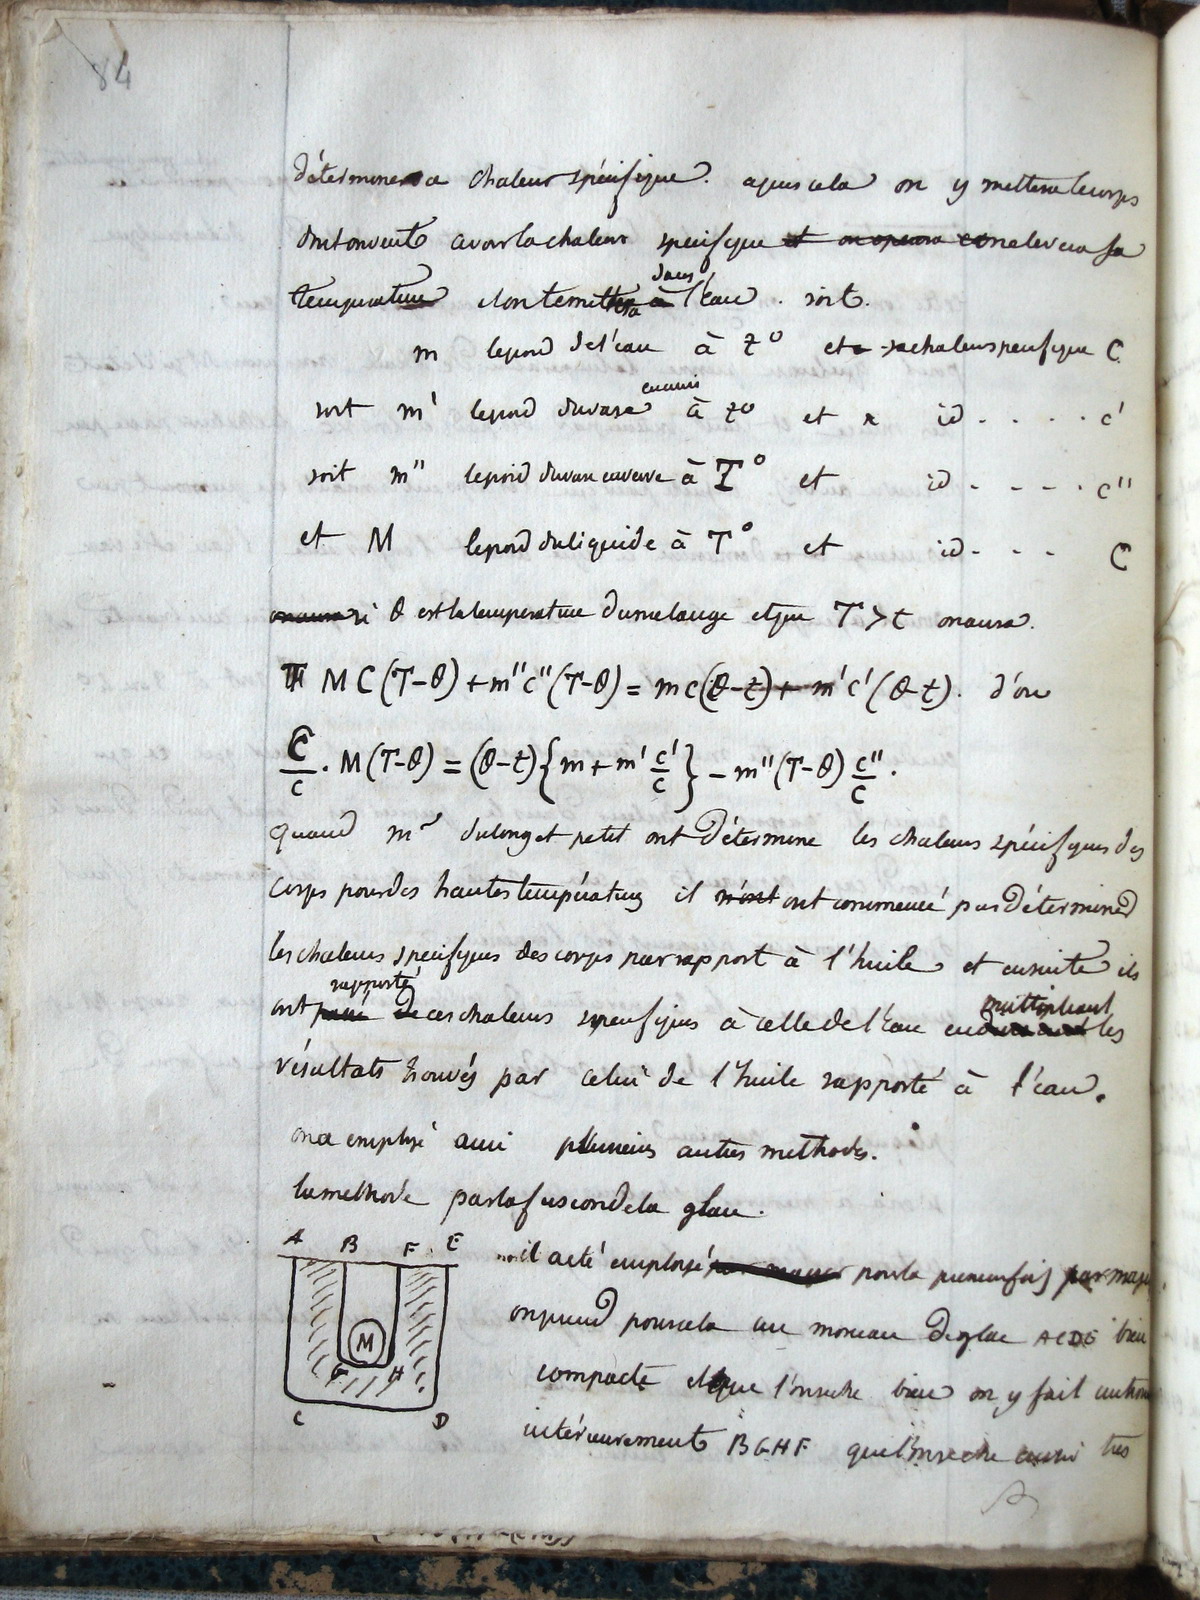 84
déterminera chaleur spécifique. apres cela on y mettera le corps
dont on veut avoir la chaleur specifique et on opera on elevera sa
temperature et on le mettera à dans l'eau. soit.
m le poid de l'eau à t° et sa chaleur specifique C
soit m' le poid du vase en cuivre à t° et id - - - - c'
soit m" le poid du vase en verre à T° et id - - - - c"
et M le poid du liquide à T° et id - - - C
on aura si θ est la temperature du melange et que T > t on aura.
M C (T-θ) + m"c" (T-θ) = m c (θ-t) + m'c' (θ-t). d'ou
C/c . M (T-θ) = (θ-t) {m + m' c'/c} - m" (T-θ) c"/c.
quand mr dulong et petit ont déterminé les chaleurs spécifiques des
corps pour des hautes températures il n'ont ont commencé par déterminer
les chaleurs specifiques des corps par rapport à l'huile et ensuite ils
ont rapporté de ces chaleurs specifiques à celle de l'eau en multipliant les
résultats trouvés par celui de l'huile rapporté à l'eau.
on a employé aussi plusieurs autres methodes.
la methode par la fusion de la glace.
A B F E
M
G H
C D
il a été employé par mayer pour la premiere fois par mayer
on prend pour cela un morceau de glace ACDE bien
compacte et que l'on seche bien on y fait un trou
intérieurement BGHF que l'on seche aussi tres